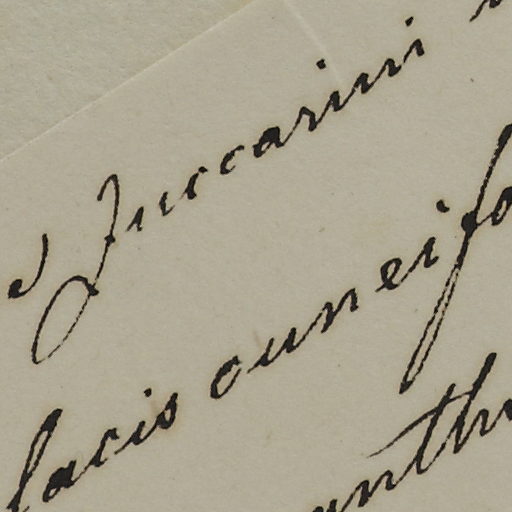 d Zuccarini
lacis cuneifo
anth